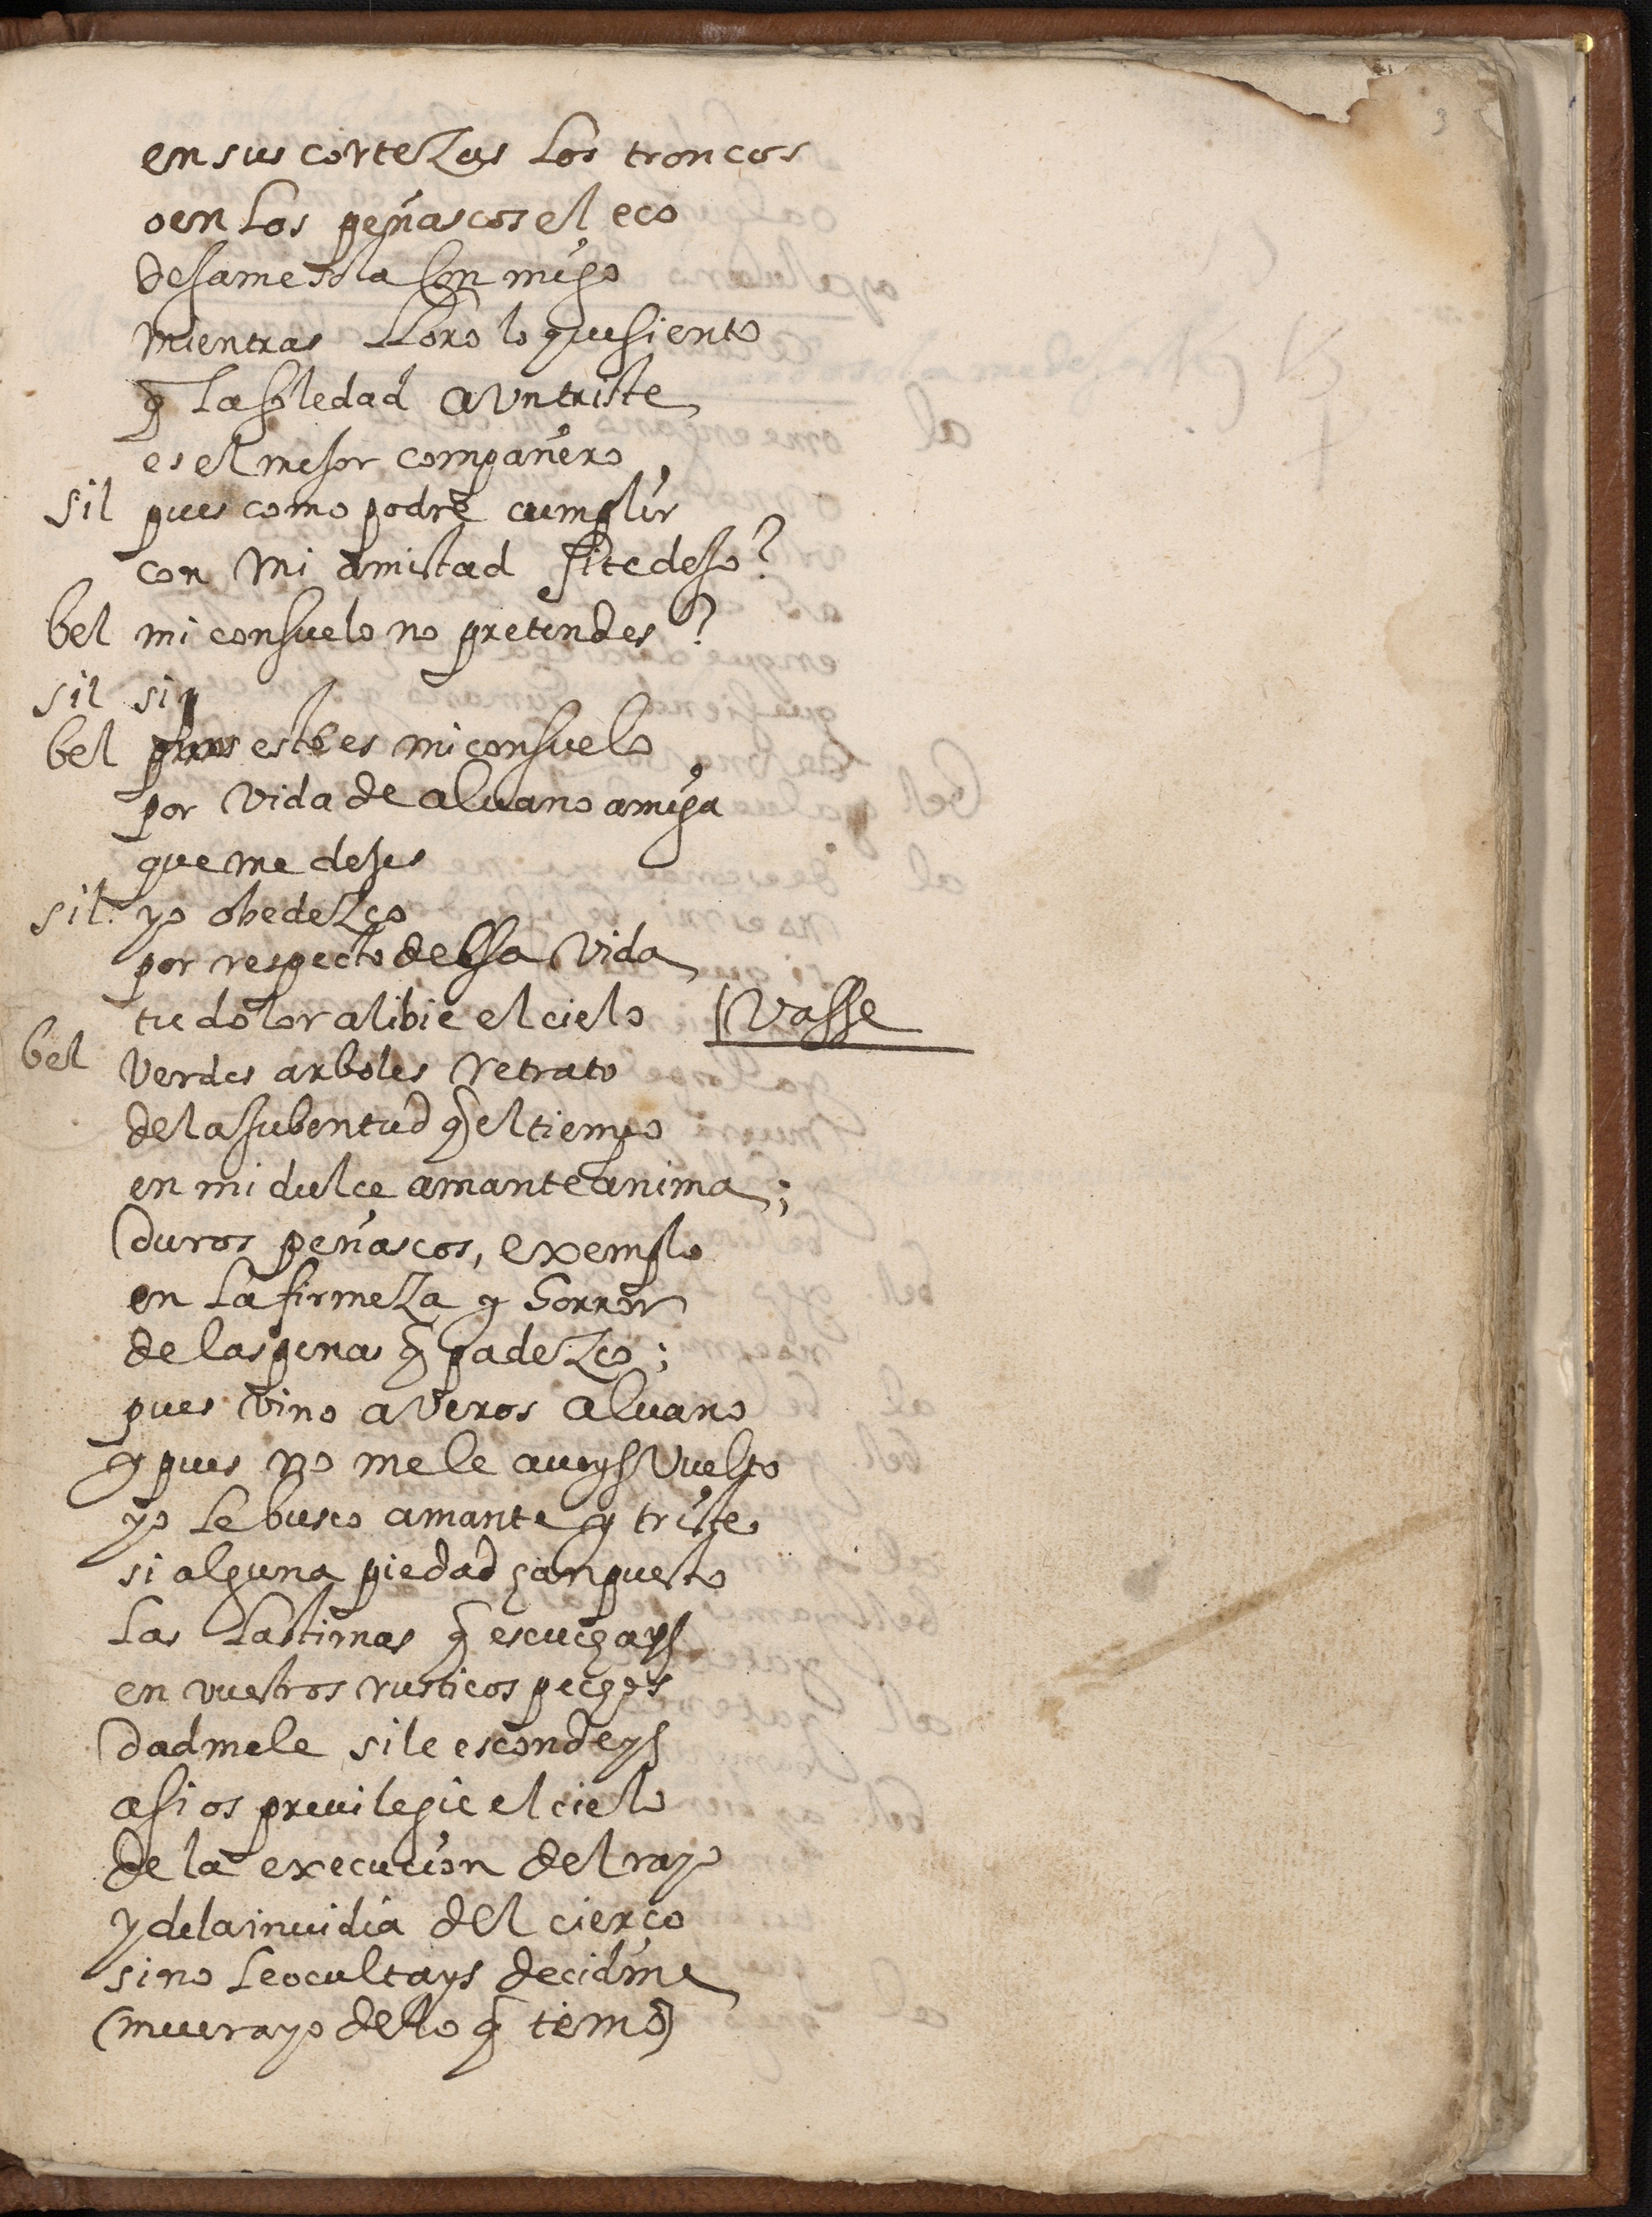 3
en sus corteZas los troncos
o en los peñascos el eco
dejame sola con migo
mientras lloro lo que siento
q̃ la soledad a un triste
es el mejor compañero
sil pues como podre cumplir
con mi amistad si te dejo?
bel mi consuelo no pretendes?
sil si
bel pues esto es mi consuelo
por vida de aluano amiga
que me dejes
sil. yo obedeZco
por respecto dessa vida
tu dolor alibie el cielo (Vasse
bel Verdes arboles retrato
de la jubentud q̃ el tiempo
en mi dulce amante anima;
duros peñascos, exemplo
en la firmeZa y horror
de las penas q̃ padeZco;
pues vino a veros aluano
y pues no me le aueys vuelto
yo le busco amante y triste
si alguna piedad han puesto
las lastimas q̃ escuchays
en vuestros rusticos pechos
dadmele si le escondeys
asi os preuilegie el cielo
de la execucion del rayo
y de la inuidia del cierço
si no le ocultays decidme
(muera yo de lo q̃ temo)